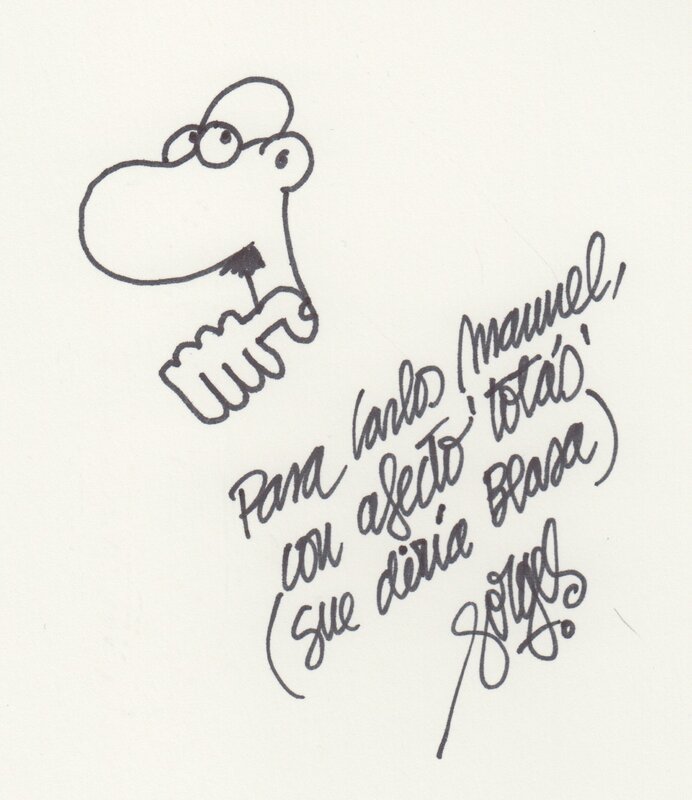 Para Carlos Manuel,
con afecto 'totás'
(que diría Blasa)
Forges